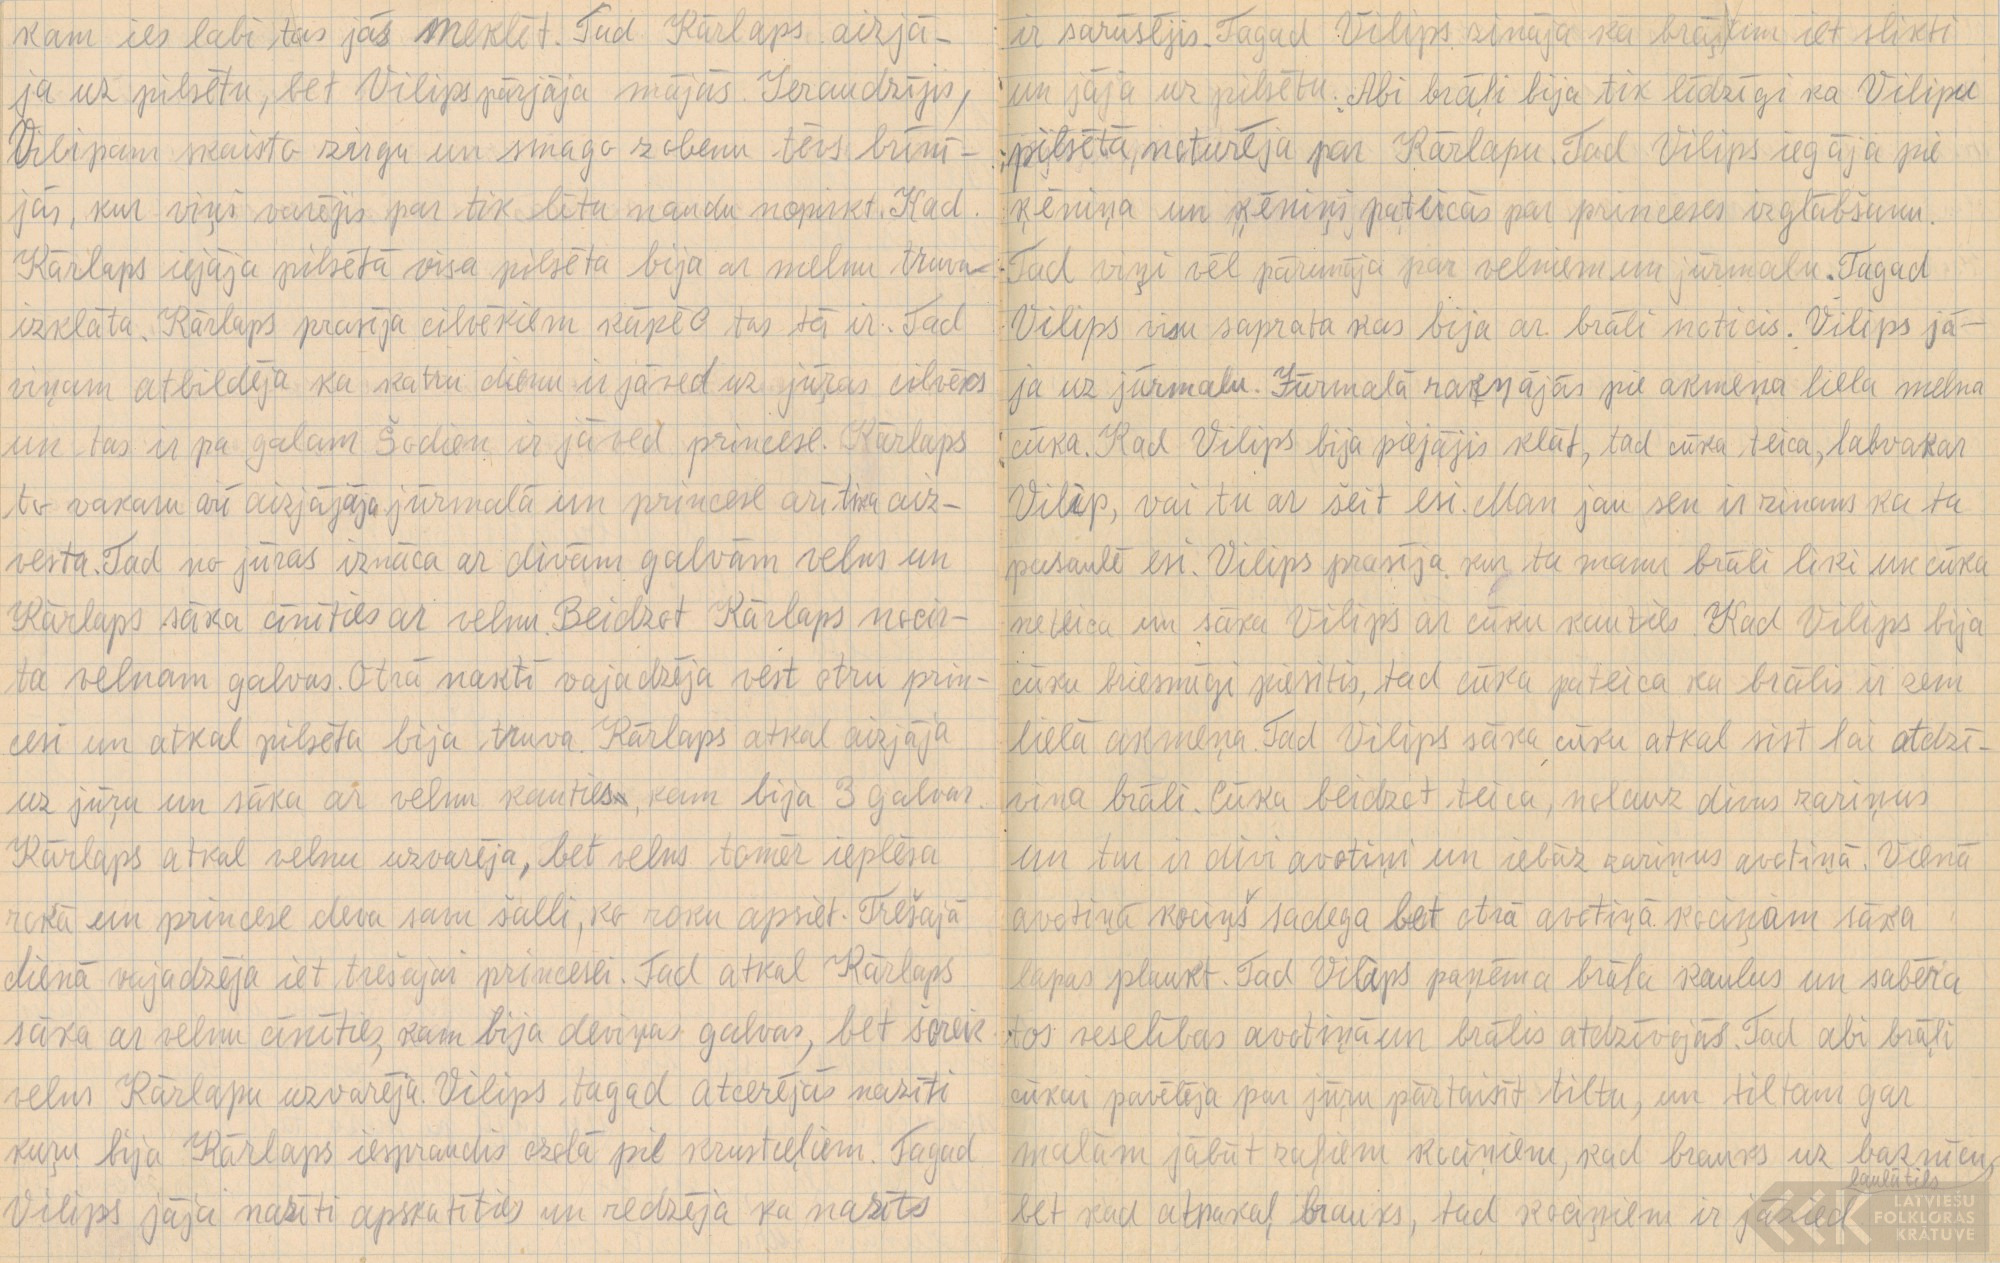 kam ies labi tas jās meklēt. Tad Kārlaps aizjā-
ja uz pilsētu, bet Vilips pārjāja mājās. Ieraudzījis,
Vilipam skaisto zirgu un smago zobenu tēvs brīnī-
jās, kur viņš varējis par tik lētu naudu nopirkt. Kad
Kārlaps iejāja pilsētā visa pilsēta bija ar melnu truvu
izklāta. Kārlaps prasīja cilvēkiem kāpēc tas tā ir. Tad
viņam atbildēja ka katru dienu ir jāved uz jūŗas cilvēks
un tas ir pa galam Šodien ir jāved princese. Kārlaps
to vakaru arī aizjājāja jūrmalā un princese arī tika aiz-
vesta. Tad no jūras iznāca ar divām galvām velns un
Kārlaps sāka cīnīties ar velnu. Beidzot Kārlaps nocir-
ta velnam galvas. Otrā naktī vajadzēja vest otru prin-
cesi un atkal pilsēta bija truva. Kārlaps atkal aizjāja
uz jūŗu un sāka ar velnu kauties, kam bija 3 galvas.
Kārlaps atkal velnu uzvarēja, bet velns tomēr ieplēsa
rokā un princese deva savu šalli, ko roku apsiet. Trešajā
dienā vajadzēja iet trešajai princesei. Tad atkal Kārlaps
sāka ar velnu cīnīties, kam bija deviņas galvas, bet šoreiz
velns Kārlapu uzvarēja. Vilips tagad atcerējās nazīti
kuŗu bija Kārlaps iespraudis ozolā pie krustceļiem. Tagad
Vilips jāja nazīti apskatīties un redzēja ka nazīts
ir sarūsējis. Tagad Vilips zināja ka brālim iet slikti
un jāja uz pilsētu. Abi brāļi bija tik līdzīgi ka Vilipu
pilsētā noturēja par Kārlapu. Tad Vilips iegāja pie
ķēniņa un ķēniņš pateicās par princeses izglābšanu.
Tad viņi vēl pārunāja par velniem un jūrmalu. Tagad
Vilips visu saprata kas bija ar brāli noticis. Vilips jā-
ja uz jūrmalu. Jūrmalā rakņājās pie akmeņa liela melna
cūka. Kad Vilips bija piejājis klāt, tad cūka teica, labvakar
Vilip, vai tu ar šeit esi. Man jau sen ir zinams ka tu
pasaulē esi. Vilips prasīja kur tu manu brāli liki un cūka
neteica un sāka Vilips ar cūku kauties. Kad Vilips bija
cūku briesmīgi piesitis, tad cūka pateica ka brālis ir zem
lielā akmeņa. Tad Vilips sāka cūku atkal sist lai atdzī-
vina brāli. Cūka beidzot teica, nolauz divus zariņus
un tur ir divi avotiņi un iebāz zariņus avotiņā. Vienā
avotiņā kociņš sadega bet otrā avotiņā kociņam sāka
lapas plaukt. Tad Vilips paņēma brāļa kaulus un sabēra
tos veselības avotiņā un brālis atdzīvojās. Tad abi brāļi
cūkai pavēlēja par jūŗu pārtaisīt tiltu, un tiltam gar
malām jābūt zaļiem kociņiem, kad brauks uz baznīcu
laulāties
bet kad atpakaļ brauks, tad kociņiem ir jāzied
LATVIEŠU
FOLKLORAS
KRĀTUVE